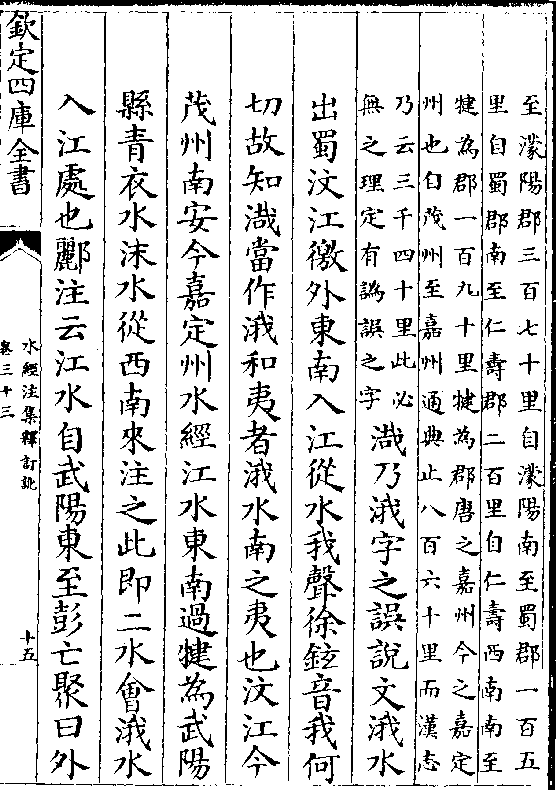 至濛陽郡三百七十里自濛陽南至蜀郡一百五
里自蜀郡南至仁壽郡二百里自仁壽西南南至
犍為郡一百九十里犍為郡唐之嘉州今之嘉定
州也自茂州至嘉州通典止八百六十里而漢志
乃云三千四十里此必
無之理定有譌誤之字
渽乃涐字之誤說文涐水
出蜀汶江徼外東南入江從水我聲徐鉉音我何
切故知渽當作涐和夷者涐水南之夷也汶江今
茂州南安今嘉定州水經江水東南過犍為武陽
縣青衣水沫水從西南來注之此即二水會涐水
入江處也酈注云江水自武陽東至彭亡聚曰外
欽定四庫全書
水經注集釋訂訛
卷三十三
十五